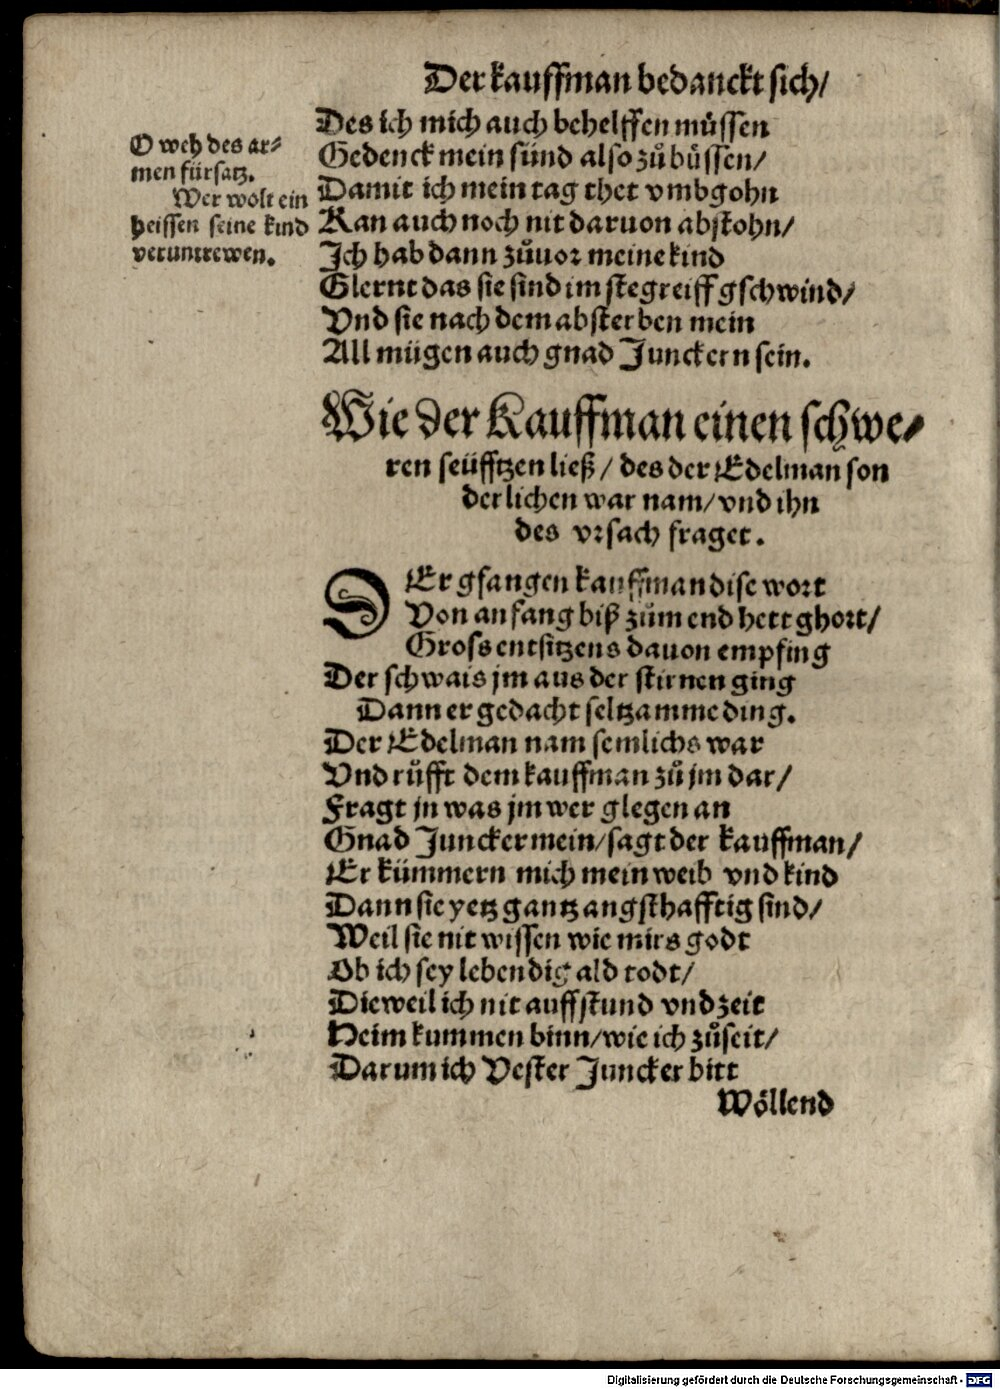 Der kauffman bedanckt sich/
Des ich mich auch behelffen müssen
Gedenck mein sünd also zůbüssen/
Damit ich mein tag thet vmbgohn
Kan auch noch nit daruon abstohn/
Ich hab dann zůuor meine kind
Glernt das sie sind im stegreiff gschwind/
Vnd sie nach dem absterben mein
All mügen auch gnad Junckern sein.
O weh des ar-
men fürsatz.
Wer wolt ein
heissen seine kind
veruntrewen.
Wie der Kauffman einen schwe-
ren seüfftzen ließ/ des der Edelman son
derlichen war nam/ vnd ihn
des vrsach fraget.
DEr gfangen kauffman dise wort
Von anfang biß zům end hett ghort/
Gross entsitzens dauon empfing
Der schwais jm aus der stirnen ging
Dann er gedacht seltzamme ding.
Der Edelman nam semlichs war
Vnd růfft dem kauffman zů jm dar/
Fragt jn was jm wer glegen an
Gnad Juncker mein/ sagt der kauffman/
Er kümmern mich mein weib vnd kind
Dann sie yetz gantz angsthafftig sind/
Weil sie nit wissen wie mirs godt
Ob ich sey lebendig ald todt/
Dieweil ich nit auff stund vnd zeit
Heim kummen binn/ wie ich zůseit/
Darum ich Vester Juncker bitt
Wöllend
Digitalisierung gefördert durch die Deutsche Forschungsgemeinschaft - DFG